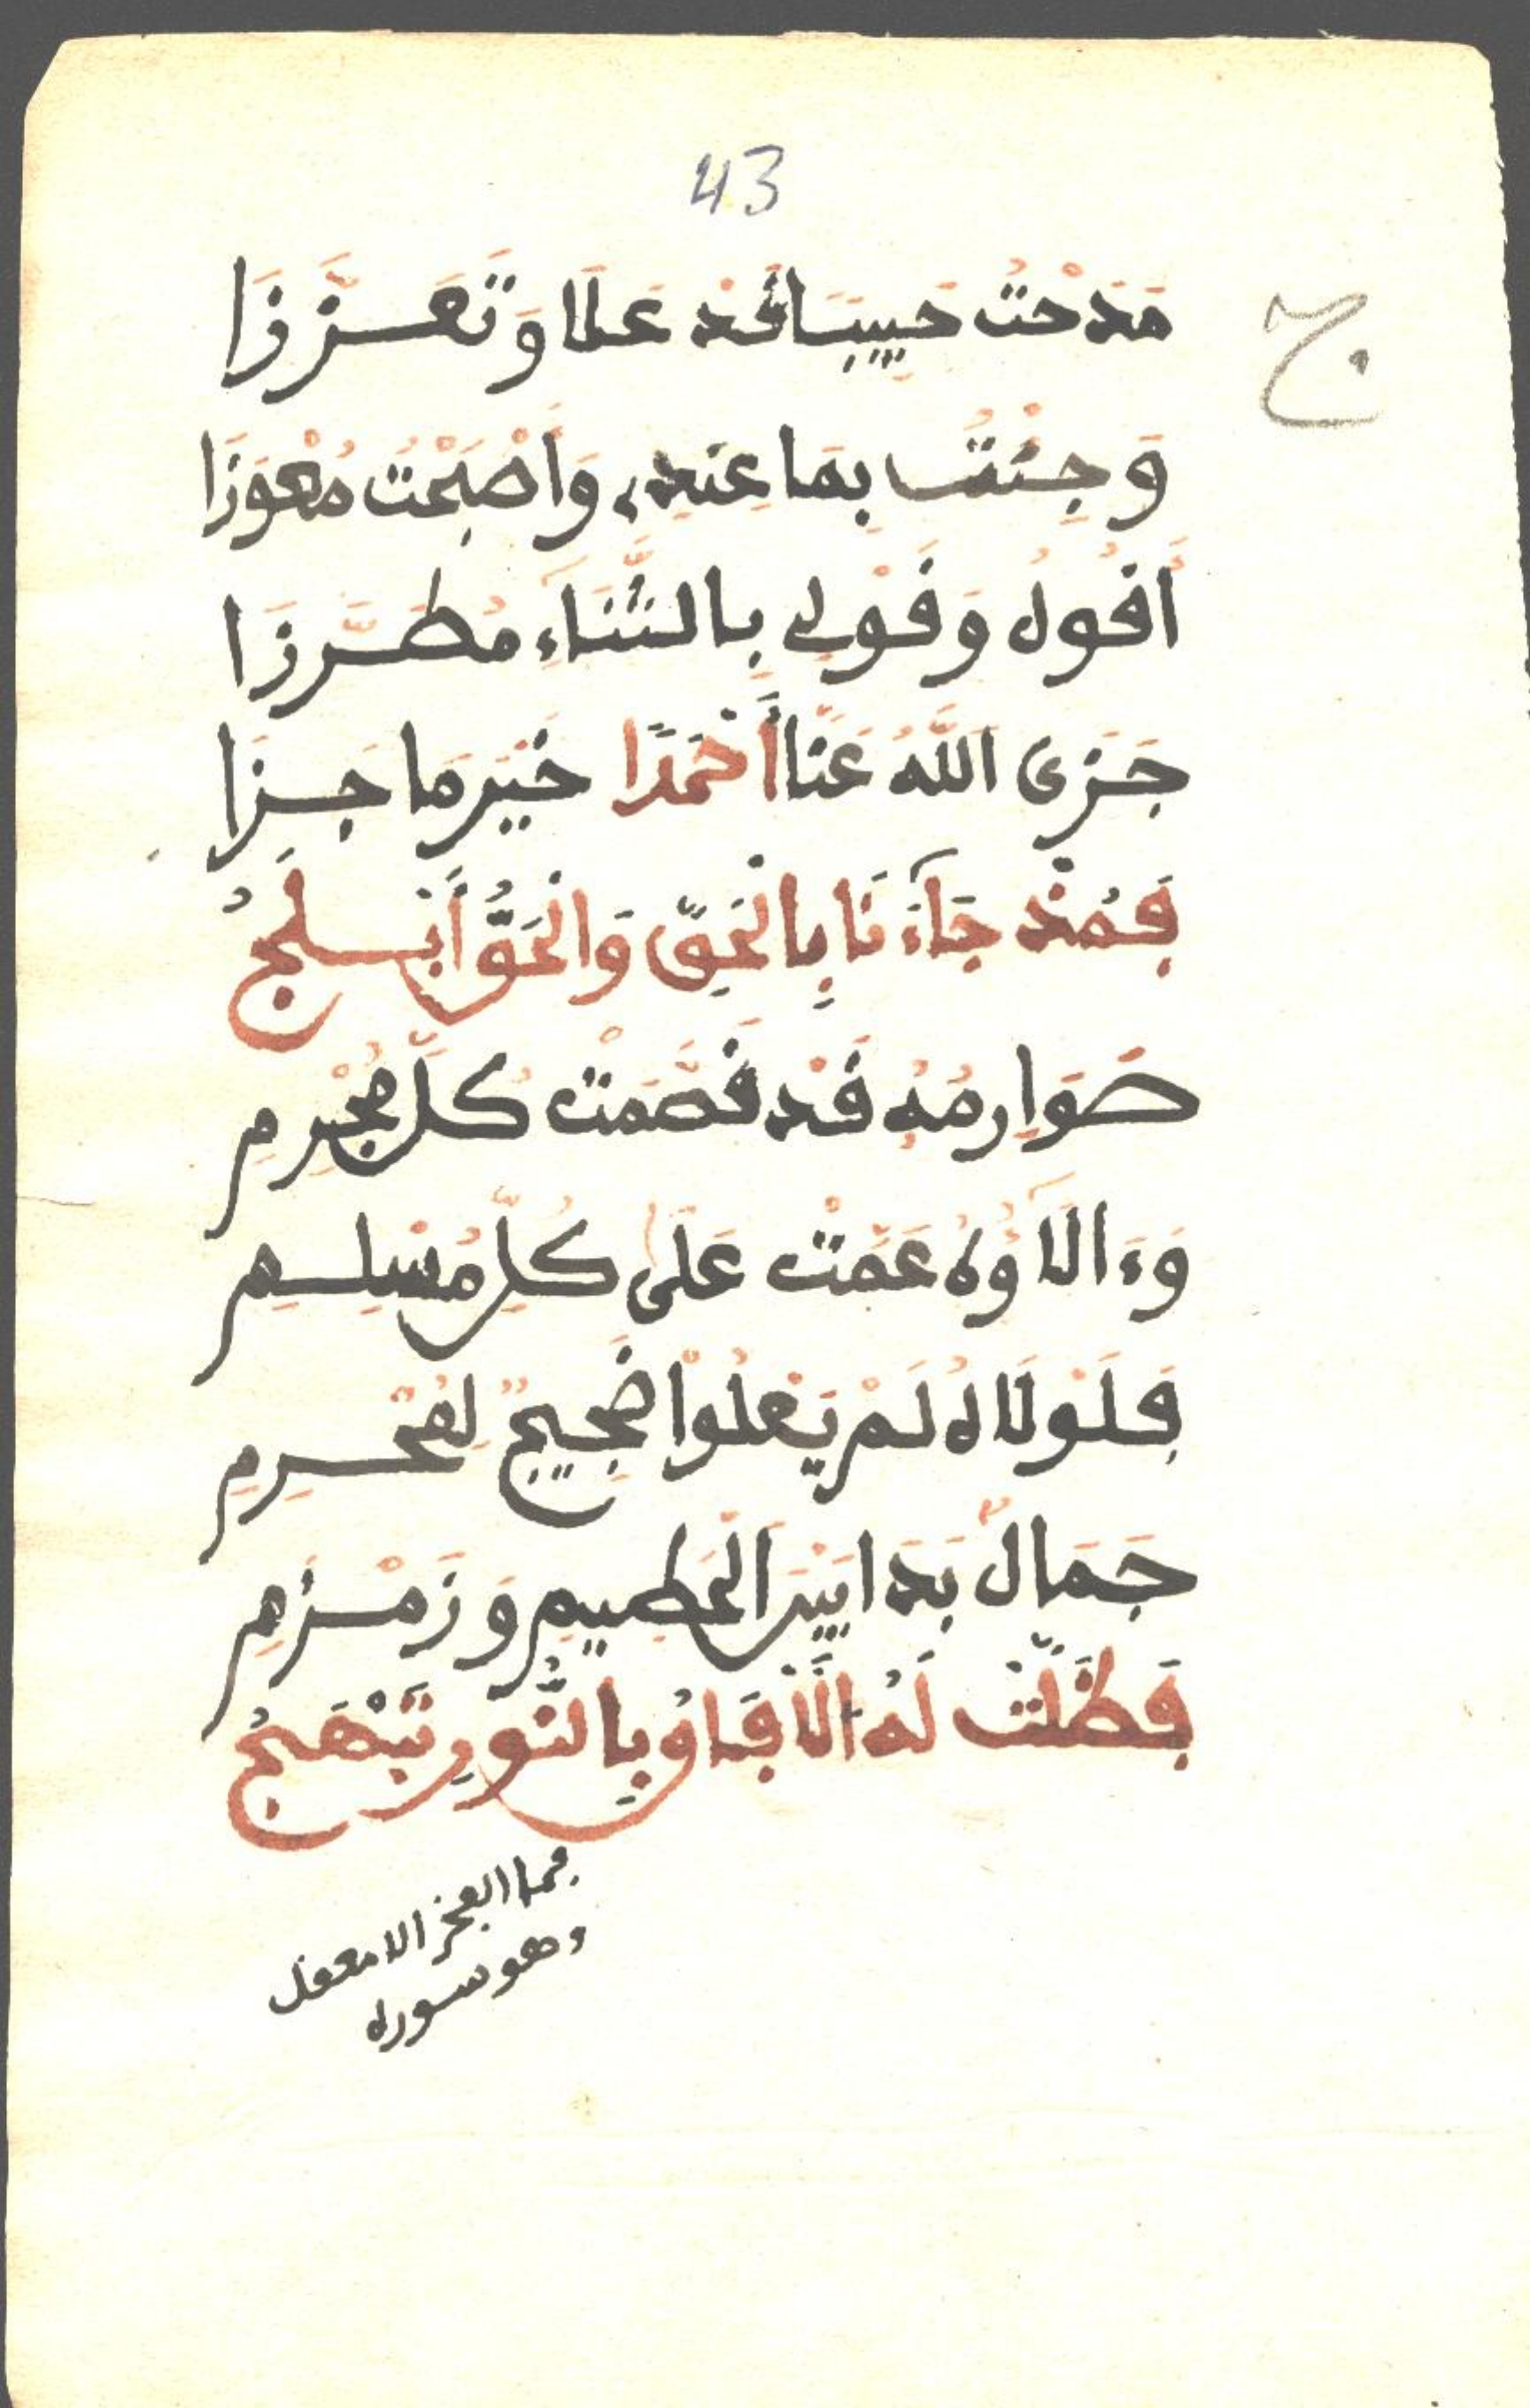 43
ج
مَدَحْتُ حَبِيبًا قَدْ عَلَا وَتَعَزَّزَا
وَجِئْتُ بِمَا عِنْدِي وَأَصْبَحْتُ مُعْوَزَا
أَقُولُ وَقَوْلِي بِالثَّنَاءِ مُطَرَّزَا
جَزَى اللَّهُ عَنَّا أَحْمَدًا خَيْرَ مَا جَزَا
فَمُذْ جَاءَنَا بِالْحَقِّ وَالْحَقُّ أَبْلَجُ
صَوَارِمُهُ قَدْ قَصَمَتْ كُلَّ مُجْرِمِ
وَءَالَآؤُهُ عَمَّتْ عَلَى كُلِّ مُسْلِمِ
فَلَوْلَاهُ لَمْ يَعْلُوا ضَجِيجٌ لِمُحْرِمِ
جَمَالٌ بَدَا بَيْنَ الْحَطِيمِ وَزَمْزَمِ
فَظَلَّتْ لَهُ الْآفَاقُ بِالنُّورِ تَبْهَجُ
فما الفخر الا معقل
وهو سوره